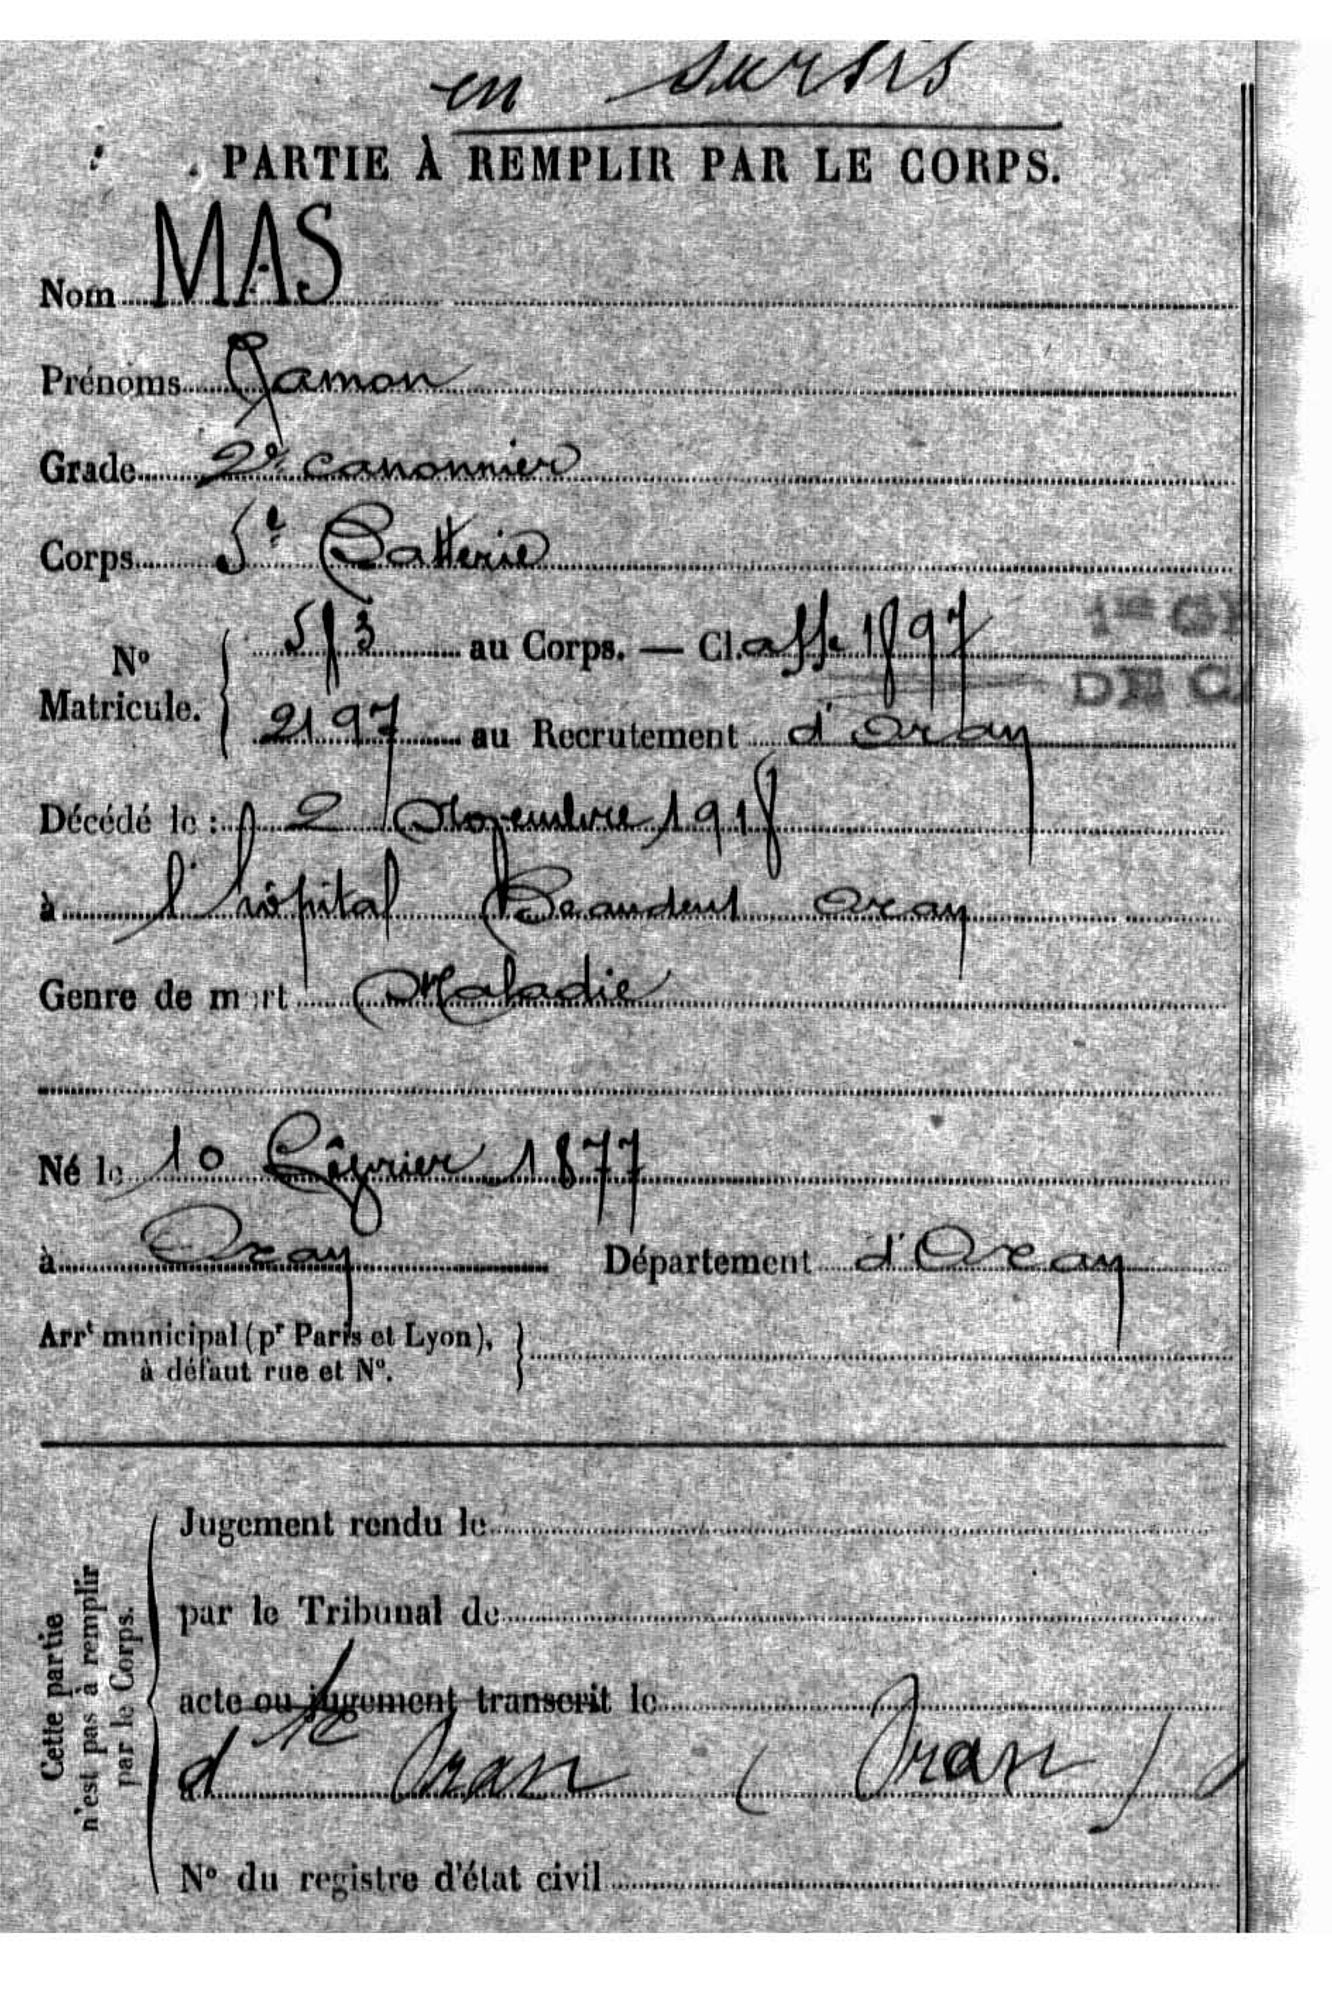 en sursis
PARTIE À REMPLIR PAR LE CORPS.
Nom MAS
Prénoms Ramon
Grade 2e canonnier
Corps 5e Batterie
No Matricule. 583 au Corps. — Cl. aff. 1897
2197 au Recrutement d'Oran
1re
DE C
Décédé le : 2 Novembre 1918
à l'hôpital Beaudens Oran
Genre de mort Maladie
Né le 10 Février 1877
à Oran Département d'Oran
Arrt municipal (pr Paris et Lyon),
à défaut rue et No.
Cette partie
n'est pas à remplir
par le Corps.
Jugement rendu le
par le Tribunal de
acte ou jugement transcrit le
d Oran (Oran)
No du registre d'état civil